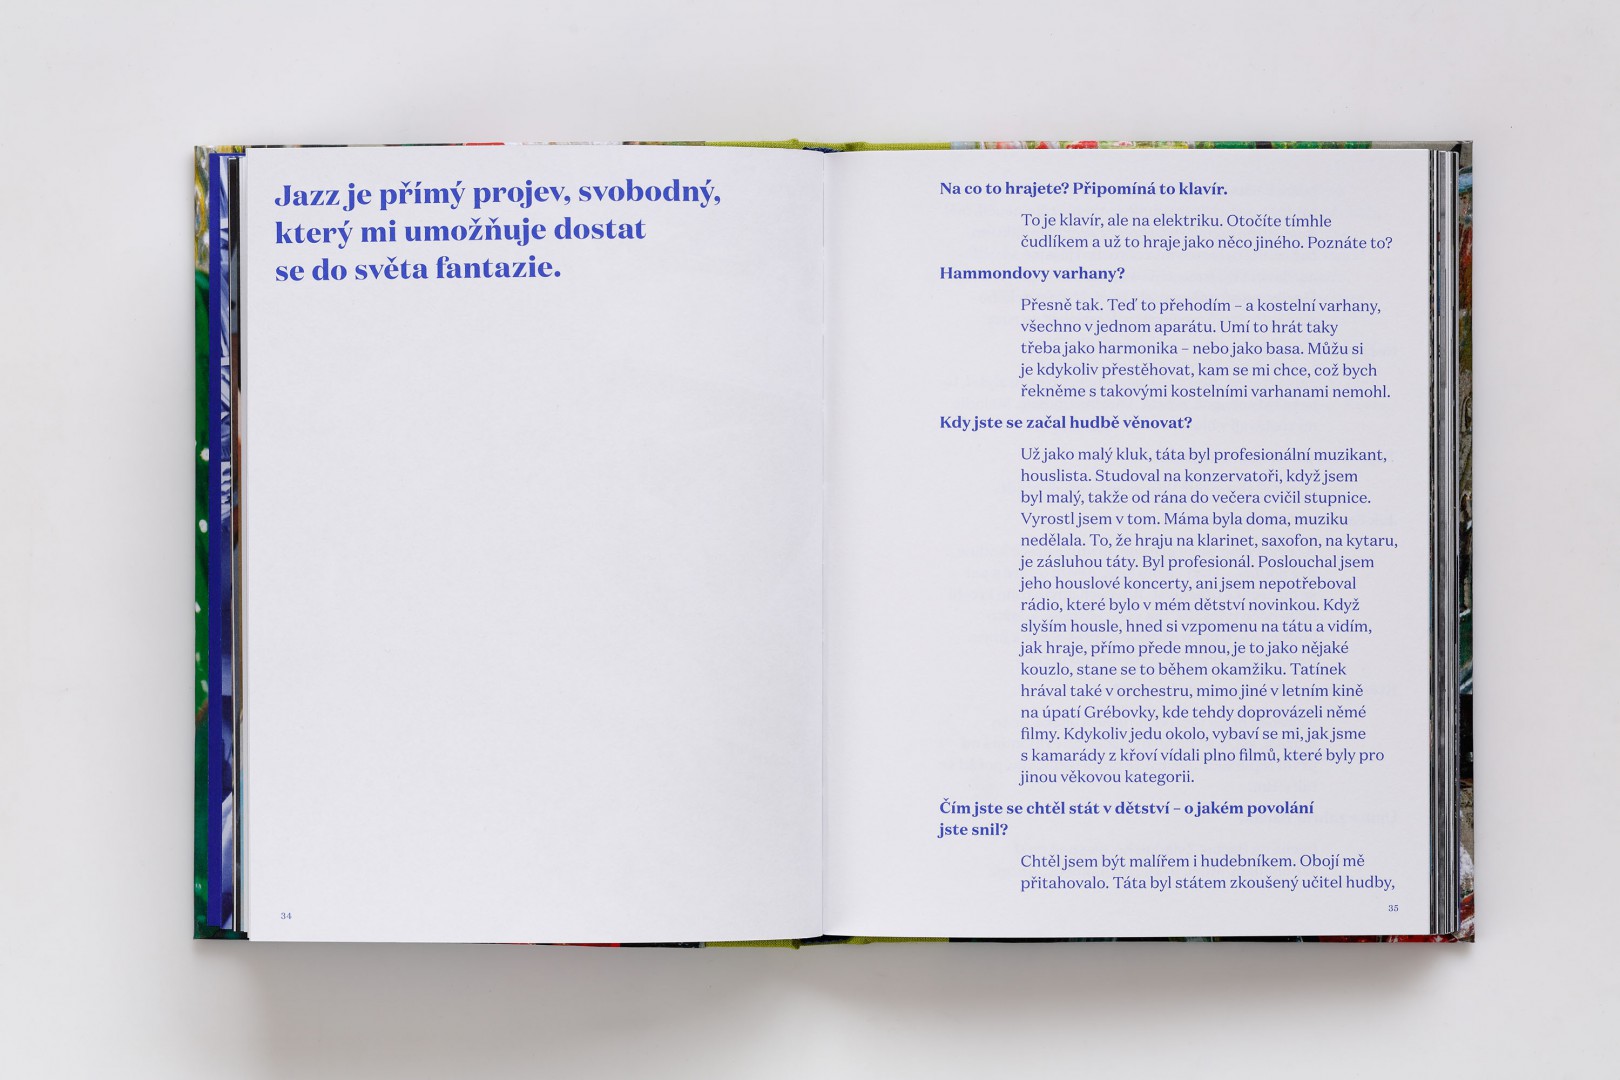 Jazz je přímý projev, svobodný,
který mi umožňuje dostat
se do světa fantazie.
34
Na co to hrajete? Připomíná to klavír.
To je klavír, ale na elektriku. Otočíte tímhle
čudlíkem a už to hraje jako něco jiného. Poznáte to?
Hammondovy varhany?
Přesně tak. Teď to přehodím – a kostelní varhany,
všechno v jednom aparátu. Umí to hrát taky
třeba jako harmonika – nebo jako basa. Můžu si
je kdykoliv přestěhovat, kam se mi chce, což bych
řekněme s takovými kostelními varhanami nemohl.
Kdy jste se začal hudbě věnovat?
Už jako malý kluk, táta byl profesionální muzikant,
houslista. Studoval na konzervatoři, když jsem
byl malý, takže od rána do večera cvičil stupnice.
Vyrostl jsem v tom. Máma byla doma, muziku
nedělala. To, že hraju na klarinet, saxofon, na kytaru,
je zásluhou táty. Byl profesionál. Poslouchal jsem
jeho houslové koncerty, ani jsem nepotřeboval
rádio, které bylo v mém dětství novinkou. Když
slyším housle, hned si vzpomenu na tátu a vidím,
jak hraje, přímo přede mnou, je to jako nějaké
kouzlo, stane se to během okamžiku. Tatínek
hrával také v orchestru, mimo jiné v letním kině
na úpatí Grébovky, kde tehdy doprovázeli němé
filmy. Kdykoliv jedu okolo, vybaví se mi, jak jsme
s kamarády z křoví vídali plno filmů, které byly pro
jinou věkovou kategorii.
Čím jste se chtěl stát v dětství – o jakém povolání
jste snil?
Chtěl jsem být malířem i hudebníkem. Obojí mě
přitahovalo. Táta byl státem zkoušený učitel hudby,
35